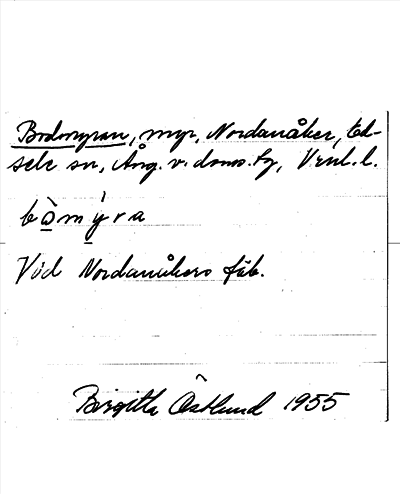 Bodmyran, myr, Nordanåker, Ed-
sele sn, Ång. v. doms. fg, Vrnl. l.
bo̱̊̀mý̱ra
Vid Nordanåkers fäb.
Birgitta Östlund 1955